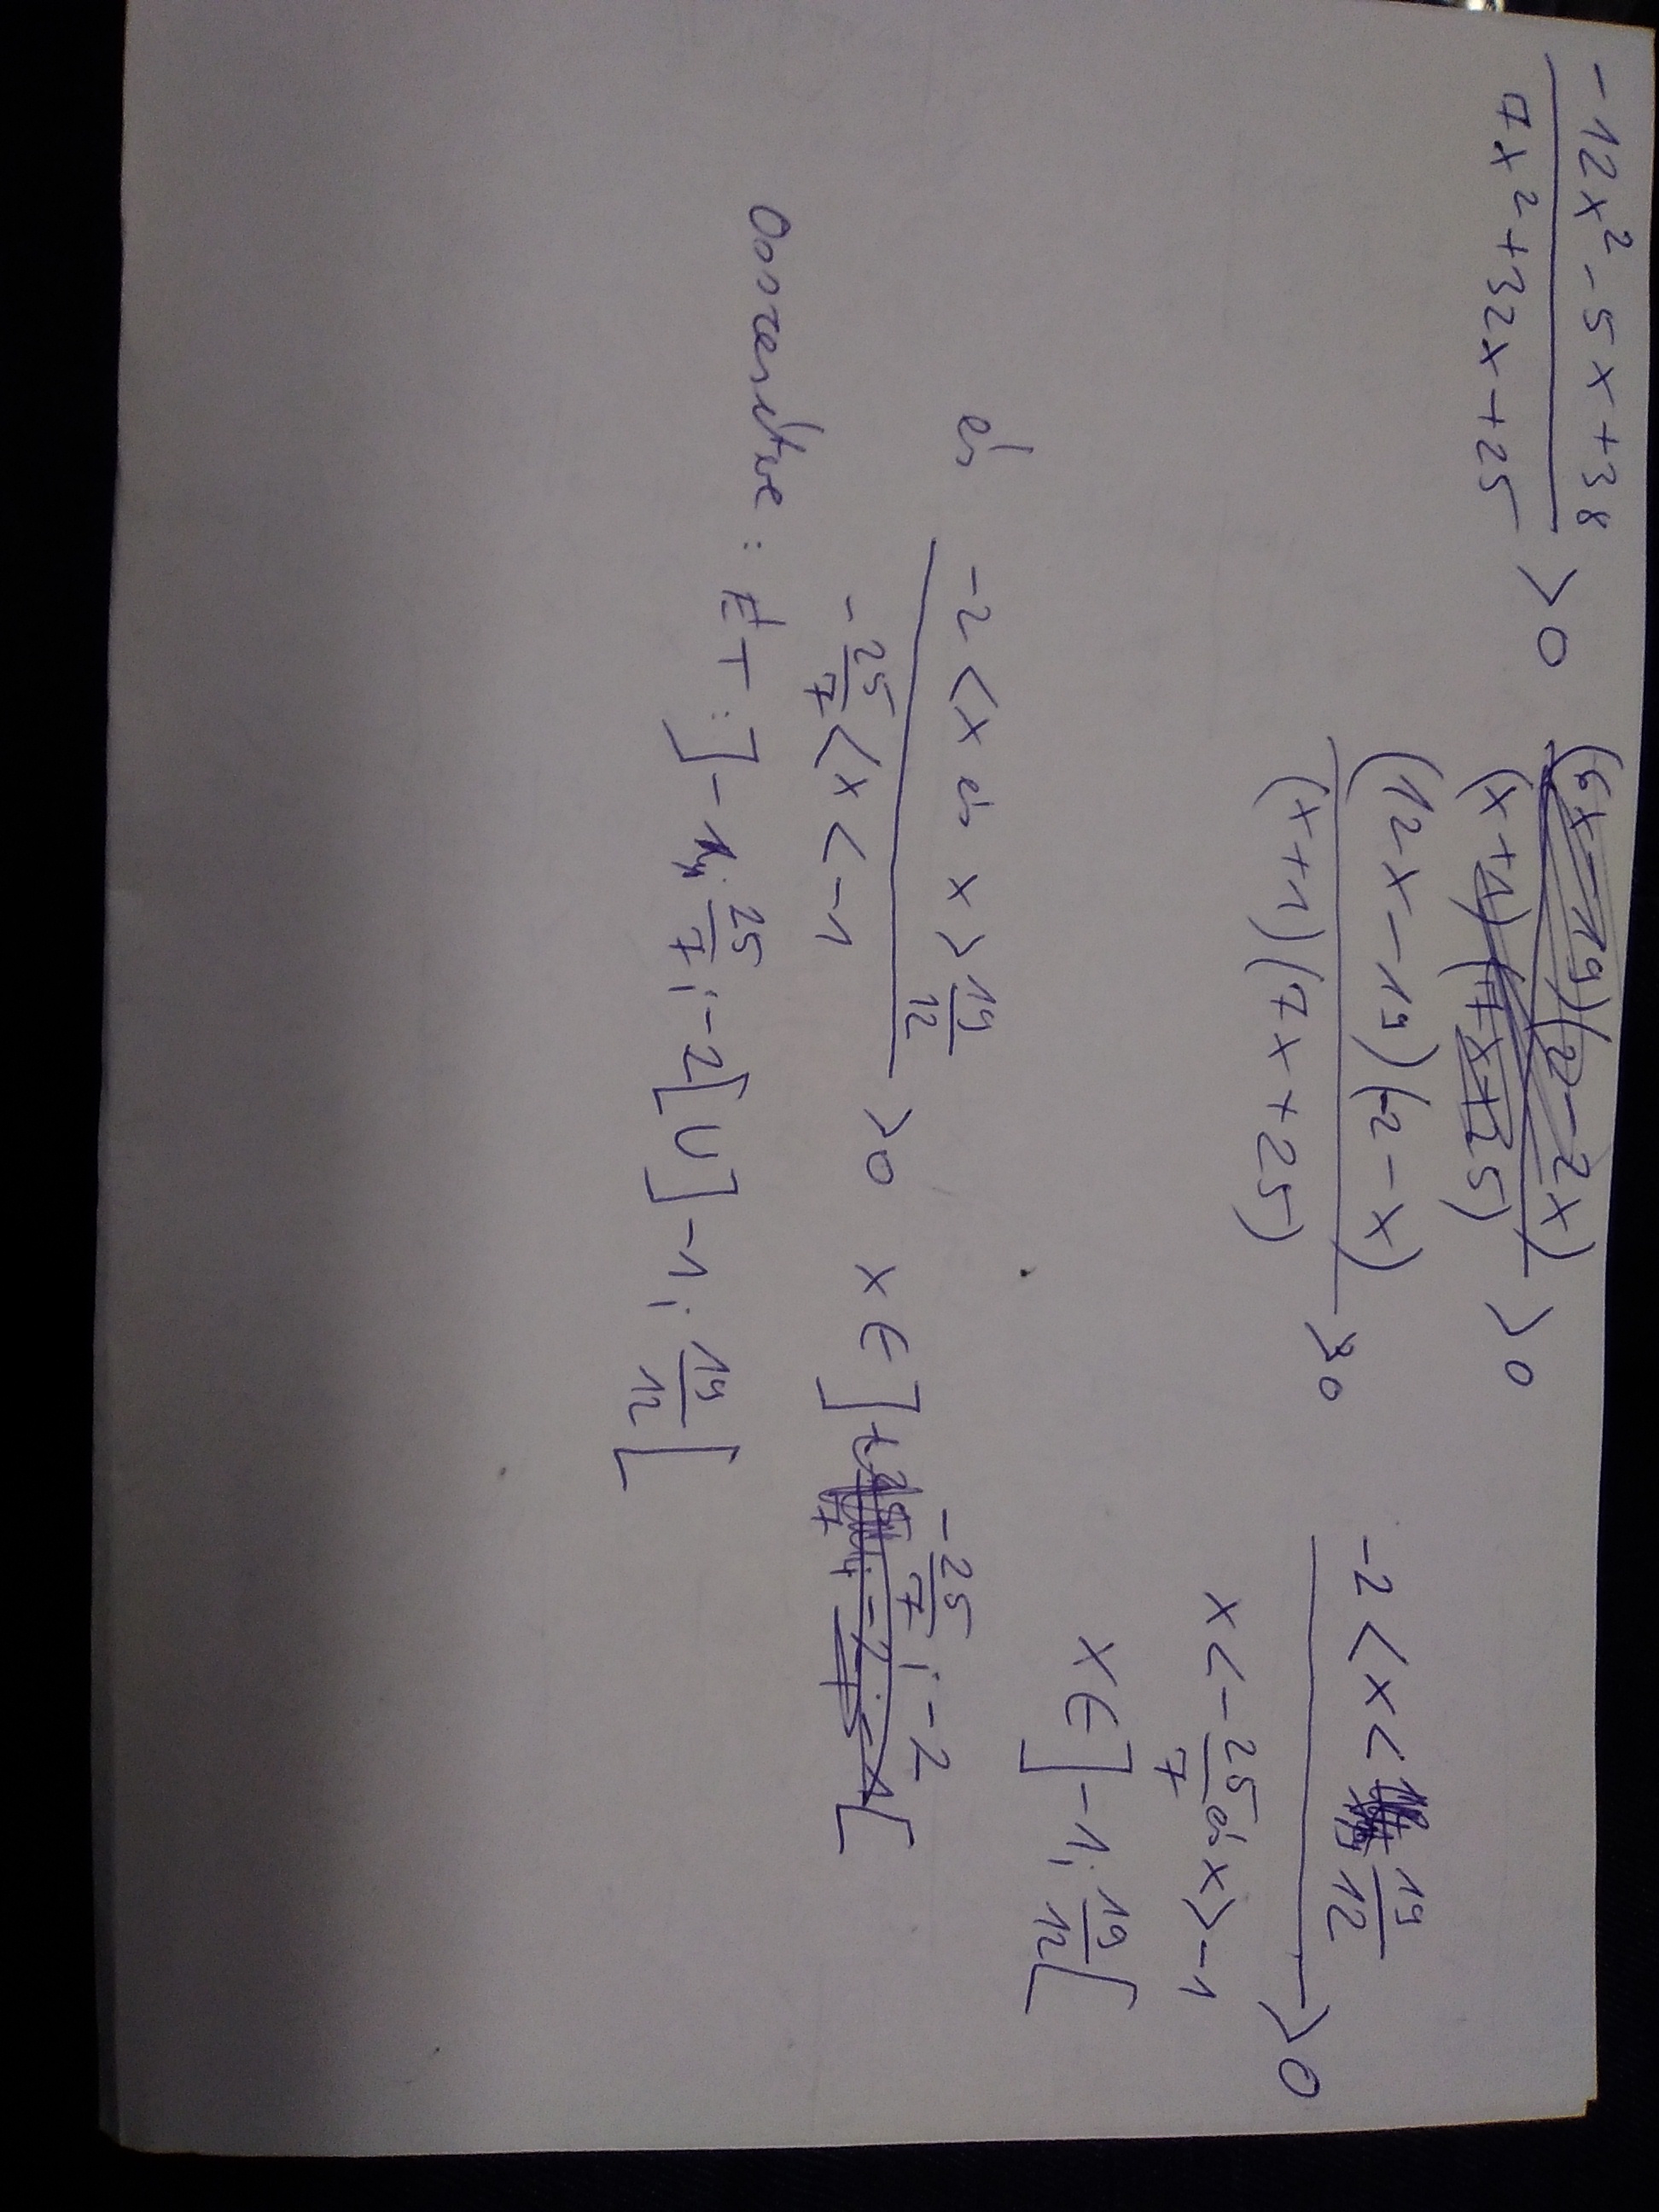 -12x²-5x+38 / 7x²+32x+25 > 0
(6x-19)(2-2x) / (x+1)(7x+25) > 0
(12x-19)(-2-x) / (x+1)(7x+25) > 0
-2<x<19/12 / x<-25/7 és x>-1 > 0
x∈]-1; 19/12[
és
-2<x és x>19/12 / -25/7<x<-1 > 0 x∈]-25/7; -2[
Összesítve: ÉT:]-25/7; -2[∪]-1; 19/12[